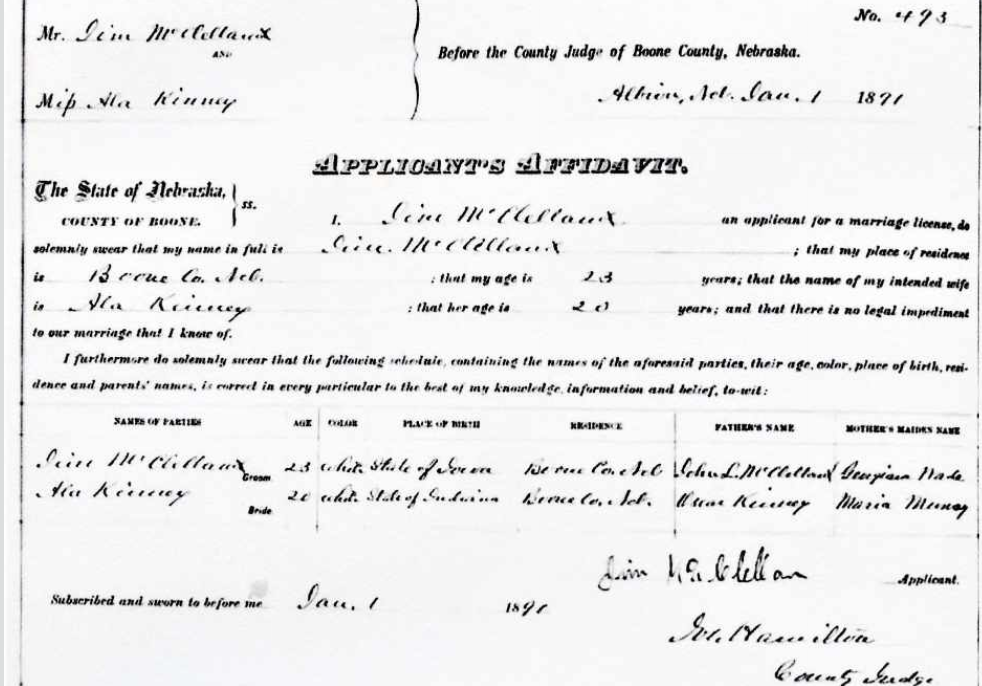 No. 493
Mr. Jim McClellan
AND
Before the County Judge of Boone County, Nebraska.
Miss Ala Kinney
Albion, Neb. Jan. 1 1891
APPLICANT'S AFFIDAVIT.
The State of Nebraska, } ss.
COUNTY OF BOONE.
I, Jim McClellan an applicant for a marriage license, do
solemnly swear that my name in full is Jim McClellan ; that my place of residence
is Boone Co. Neb. ; that my age is 23 years; that the name of my intended wife
is Ala Kinney ; that her age is 20 years; and that there is no legal impediment
to our marriage that I know of.
I furthermore do solemnly swear that the following schedule, containing the names of the aforesaid parties, their age, color, place of birth, resi-
dence and parents' names, is correct in every particular to the best of my knowledge, information and belief, to-wit:
NAMES OF PARTIES AGE COLOR PLACE OF BIRTH RESIDENCE FATHER'S NAME MOTHER'S MAIDEN NAME
Jim McClellan Groom 23 white State of Iowa Boone Co. Neb John L. McClellan Georgiana
Ala Kinney Bride 20 white State of Indiana Boone Co. Neb. Oscar Kinney Maria
Jim McClellan Applicant.
Subscribed and sworn to before me Jan. 1 1891
Hamilton
County Judge